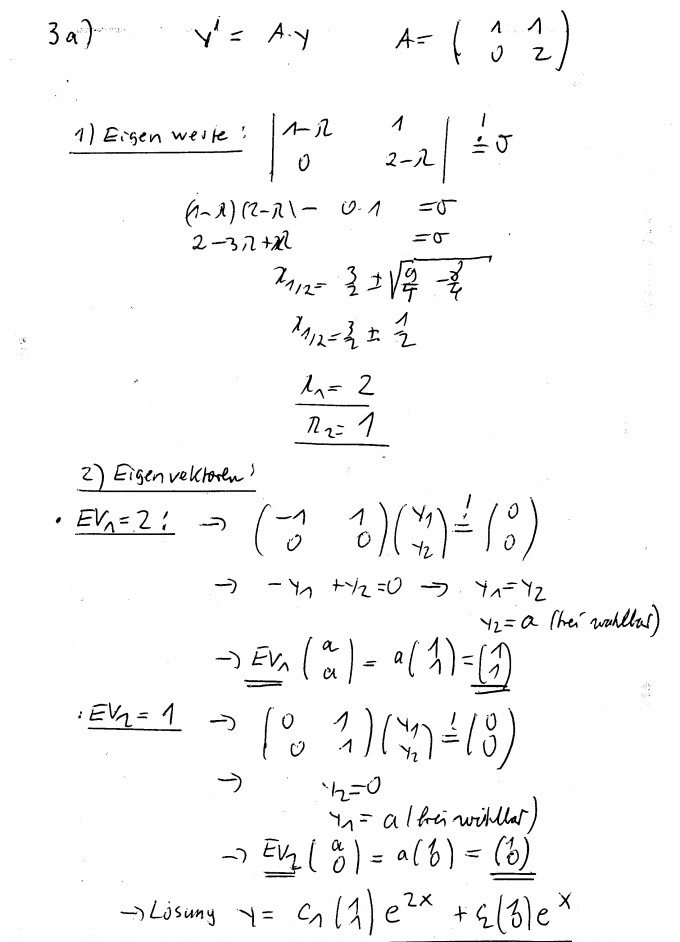 3a) y' = A·y A = ( 1 1 0 2 )
1) Eigenwerte: | 1-λ 1 0 2-λ | =! 0
(1-λ)(2-λ) - 0·1 = 0
2 - 3λ + λ² = 0
λ1/2 = 3/2 ± √(9/4 - 8/4)
λ1/2 = 3/2 ± 1/2
λ1 = 2
λ2 = 1
2) Eigenvektoren:
• EV1 = 2: → ( -1 1 0 0 ) ( y1 y2 ) =! ( 0 0 )
→ -y1 + y2 = 0 → y1 = y2
y2 = a (frei wählbar)
→ EV1 ( a a ) = a ( 1 1 ) = ( 1 1 )
: EV2 = 1 → ( 0 1 0 1 ) ( y1 y2 ) =! ( 0 0 )
→ y2 = 0
y1 = a (frei wählbar)
→ EV2 ( a 0 ) = a ( 1 0 ) = ( 1 0 )
→ Lösung y = C1 ( 1 1 ) e^2x + C2 ( 1 0 ) e^x